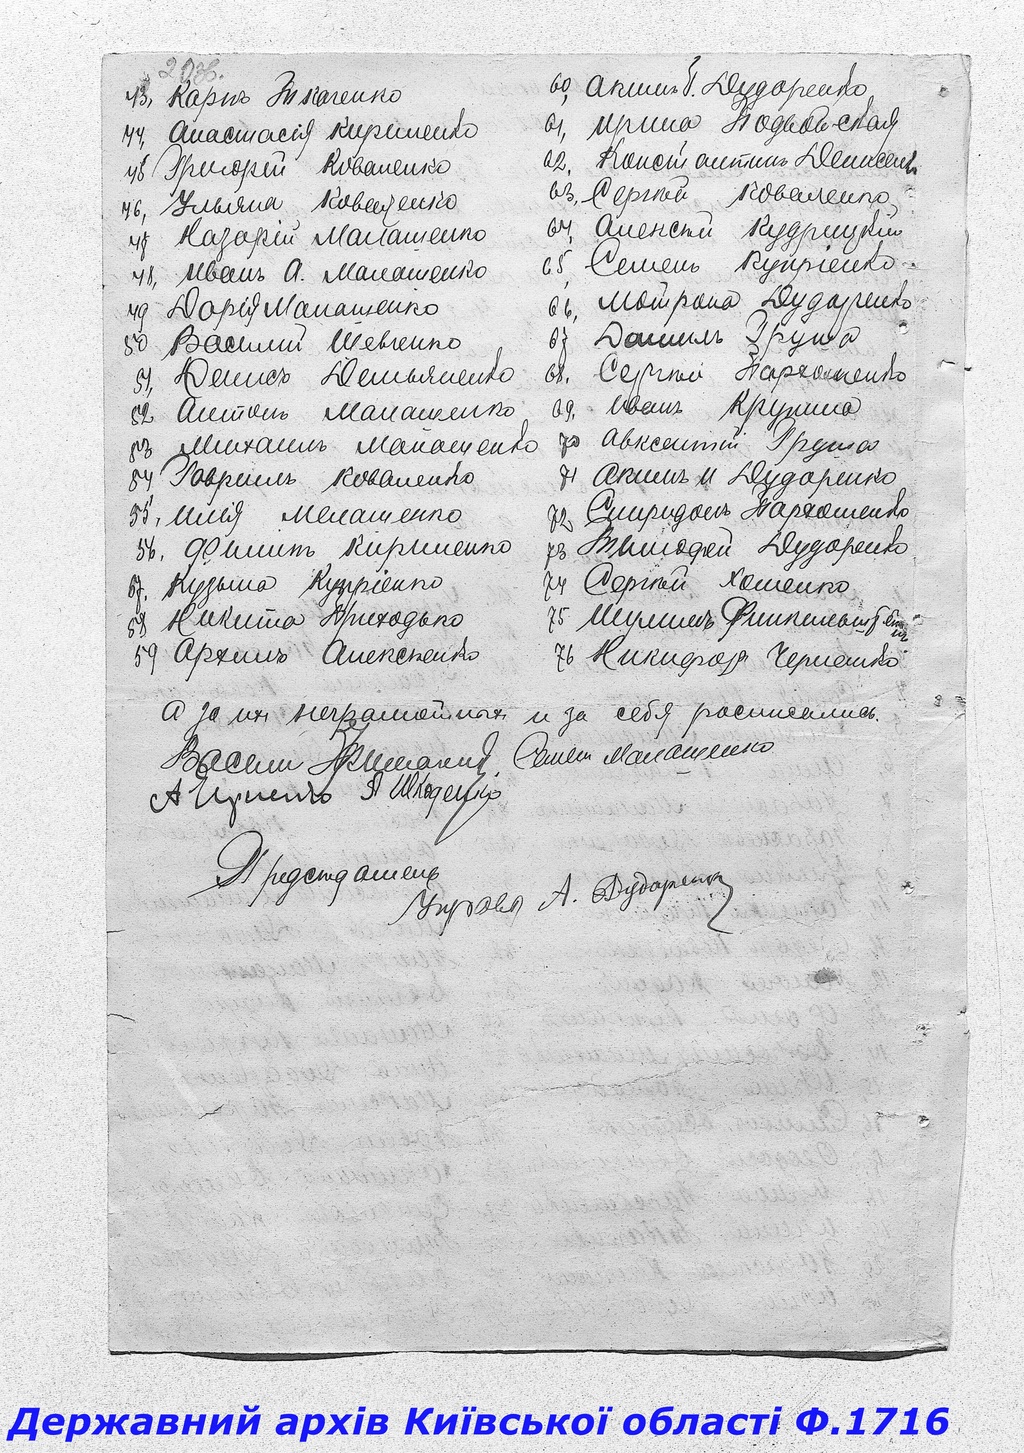 20 зв.
43, Карпъ Ткаченко
44, Анастасія Кириленко
45 Григорій Коваленко
46, Ульяна Коваленко
47 Назарій Малашенко
48, Иванъ А. Малашенко
49 Дарія Малашенко
50 Василій Шевченко
51, Денисъ Демьяненко
52 Антонъ Малашенко
53 Михаилъ Малашенко
54 Гавриилъ Коваленко
55, Илія Малашенко
56, Филипъ Кириленко
57, Кузьма Купріенко
58 Никита Приходько
59 Архипъ Алексѣенко
60, Акимъ Г. Дудоренко
61, Ирина Подвойская
62, Константинъ Денисенко
63, Сергѣй Коваленко
64, Алексѣй Кудрицкій
65, Семенъ Купріенко
66, Мотрона Дудоренко
67 Даниилъ Груша
68. Сергѣй Пархоменко
69, Иванъ Крупина
70 Авксентій Груша
71 Акимъ И Дудоренко
72, Спиридонъ Пархоменко
73 Тимофей Дудоренко
74 Сергѣй Хоменко
75 Шулимъ
76 Никифоръ Чернешко
А за ихъ неграмотныхъ и за себя росписались.
Василий Семен Малашенко
А
Председатель
А. Дудоренко
Державний архів Київської області Ф.1716